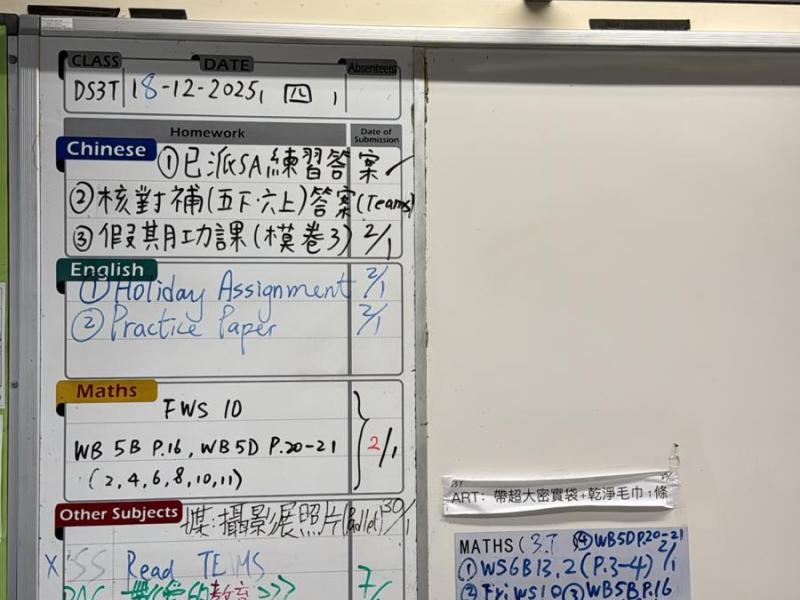 CLASS DATE Absentees
DS3T 18-12-2025, 四,
Homework Date of Submission
Chinese ①已派SA練習答案✓
②核對補(五下·六上)答案(Teams)
③假期功課(模卷3) 2/1
English
①Holiday Assignment 2/1
②Practice Paper 2/1
Maths
FWS 10
WB 5B P.16, WB 5D P.20-21 2/1
(2,4,6,8,10,11)
Other Subjects 攝影展照片(Padlet) 30/1
X SS Read TEMS
教育 >>> 7/
ART: 帶超大密實袋+乾淨毛巾1條
MATHS (3T ④WB5D P.20-21
①WS6B13.2(P.3-4) 2/1
②Fri WS10 ③WB5B P.16